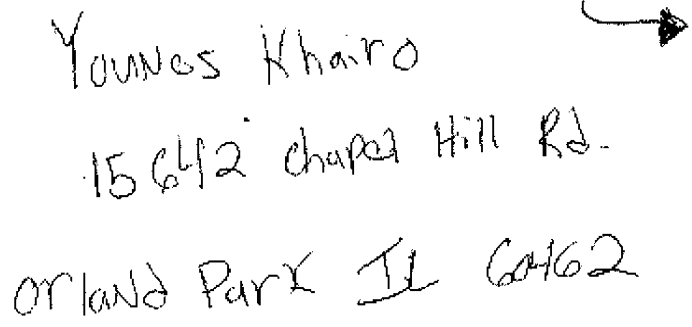 Younes Khairo
15642 Chapel Hill Rd.
Orland Park IL 60462